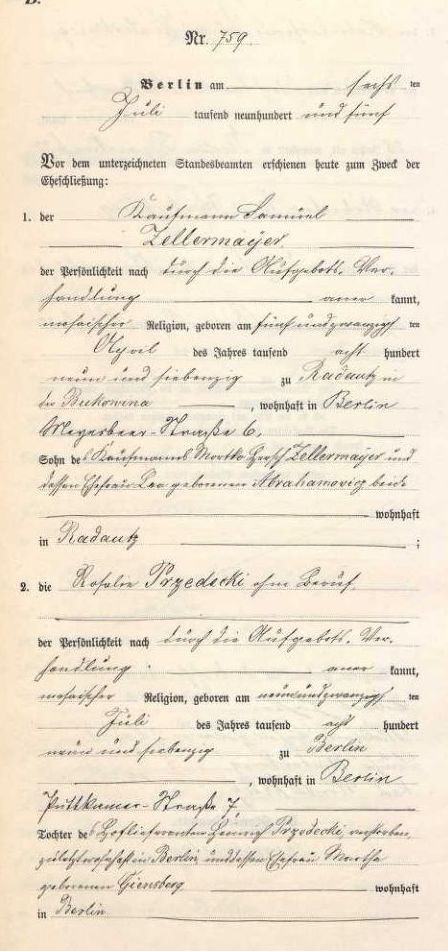 B.
Nr. 759.
Berlin am sechs ten
Juli tausend neunhundert und fünf
Vor dem unterzeichneten Standesbeamten erschienen heute zum Zweck der
Eheschließung:
1. der Kaufmann Samuel
Zellermayer,
der Persönlichkeit nach durch die Aufgebots-Ver-
handlung aner kannt,
mosaischer Religion, geboren am fünfundzwanzigs ten
April des Jahres tausend acht hundert
neun und siebenzig zu Radautz in
der Bukowina, wohnhaft in Berlin
Meyerbeer-Straße 6,
Sohn des Kaufmanns Mortko Hersch Zellermayer und
dessen Ehefrau Lea geborenen Abrahamovicz beide
wohnhaft
in Radautz;
2. die Rosalie Przedecki ohne Beruf,
der Persönlichkeit nach durch die Aufgebots-Ver-
handlung aner kannt,
mosaischer Religion, geboren am neunundzwanzigs ten
Juli des Jahres tausend acht hundert
neun und siebenzig zu Berlin
, wohnhaft in Berlin
Puttkamer-Straße 7,
Tochter des Hoflieferanten Przedecki, verstorben,
zuletzt wohnhaft in Berlin, und dessen Ehefrau Martha
geborenen Giensberg wohnhaft
in Berlin